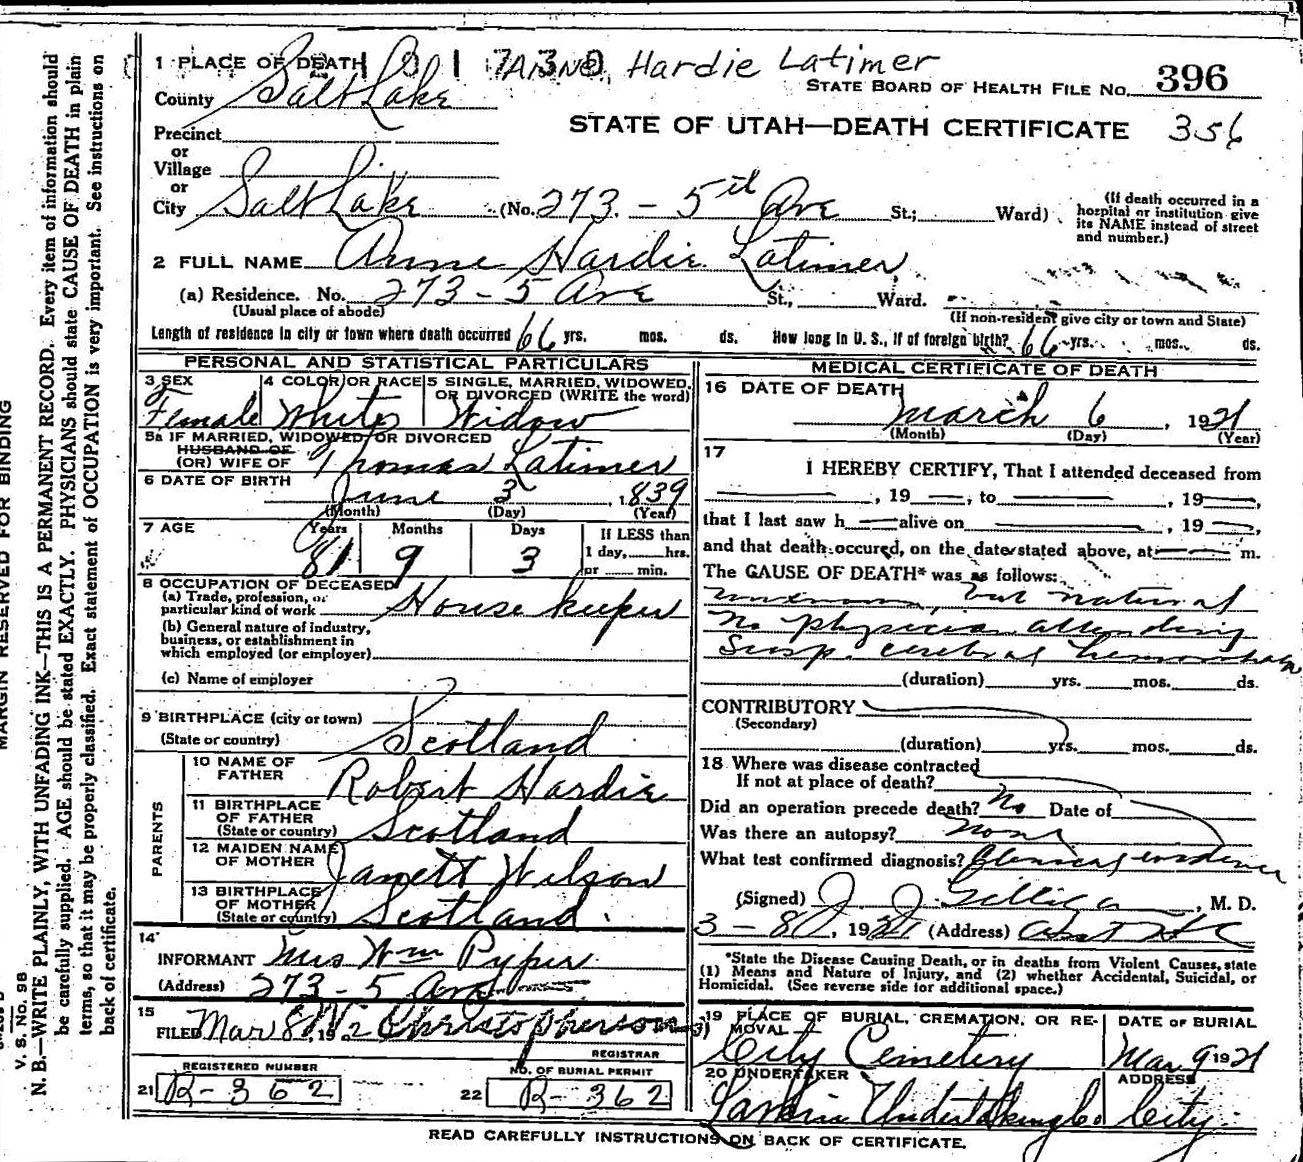 1 PLACE OF DEATH
Anne Hardie Latimer
County Salt Lake
STATE BOARD OF HEALTH FILE No. 396
STATE OF UTAH—DEATH CERTIFICATE 356
Precinct
or
Village
or
City Salt Lake (No. 273 - 5th Ave St.; Ward)
(If death occurred in a hospital or institution give its NAME instead of street and number.)
2 FULL NAME Anne Hardie Latimer
(a) Residence. No. 273 - 5 Ave St., Ward.
(Usual place of abode)
(If non-resident give city or town and State)
Length of residence in city or town where death occurred 66 yrs. mos. ds. How long in U. S., if of foreign birth? 66 yrs. mos. ds.
PERSONAL AND STATISTICAL PARTICULARS
3 SEX Female
4 COLOR OR RACE White
5 SINGLE, MARRIED, WIDOWED, OR DIVORCED (WRITE the word) Widow
5a IF MARRIED, WIDOWED, OR DIVORCED
HUSBAND OF
(OR) WIFE OF Thomas Latimer
6 DATE OF BIRTH
June 3, 1839
(Month) (Day) (Year)
7 AGE Years Months Days If LESS than
81 9 3 1 day, hrs.
or min.
8 OCCUPATION OF DECEASED
(a) Trade, profession, or
particular kind of work House keeper
(b) General nature of industry,
business, or establishment in
which employed (or employer)
(c) Name of employer
9 BIRTHPLACE (city or town)
(State or country) Scotland
PARENTS
10 NAME OF
FATHER Robert Hardie
11 BIRTHPLACE
OF FATHER
(State or country) Scotland
12 MAIDEN NAME
OF MOTHER Janett Wilson
13 BIRTHPLACE
OF MOTHER
(State or country) Scotland.
14
INFORMANT Mrs Wm Pyper
(Address) 273 - 5 Ave
15
FILED Mar 8, 192 Christopherson
REGISTRAR
REGISTERED NUMBER
21 R-362
NO. OF BURIAL PERMIT
22 R-362
MEDICAL CERTIFICATE OF DEATH
16 DATE OF DEATH
March 6, 1921
(Month) (Day) (Year)
17
I HEREBY CERTIFY, That I attended deceased from
, 19 , to , 19 ,
that I last saw h alive on , 19 ,
and that death occured, on the date stated above, at m.
The CAUSE OF DEATH* was as follows:
unknown, but natural
No physician attending
Susp. cerebral hemorrhage
(duration) yrs. mos. ds.
CONTRIBUTORY
(Secondary)
(duration) yrs. mos. ds.
18 Where was disease contracted
If not at place of death?
Did an operation precede death? No Date of
Was there an autopsy? None
What test confirmed diagnosis? Clinical evidence
(Signed) J. J. Galligan, M. D.
3-8, 1921 (Address)
*State the Disease Causing Death, or in deaths from Violent Causes, state
(1) Means and Nature of Injury, and (2) whether Accidental, Suicidal, or
Homicidal. (See reverse side for additional space.)
19 PLACE OF BURIAL, CREMATION, OR RE-
MOVAL
City Cemetery
DATE OF BURIAL
Mar 9 1921
20 UNDERTAKER
Undertaking Co
ADDRESS
City.
READ CAREFULLY INSTRUCTIONS ON BACK OF CERTIFICATE.
MARGIN RESERVED FOR BINDING
V. S. No. 98
N. B.—WRITE PLAINLY, WITH UNFADING INK—THIS IS A PERMANENT RECORD. Every item of information should
be carefully supplied. AGE should be stated EXACTLY. PHYSICIANS should state CAUSE OF DEATH in plain
terms, so that it may be properly classified. Exact statement of OCCUPATION is very important. See instructions on
back of certificate.